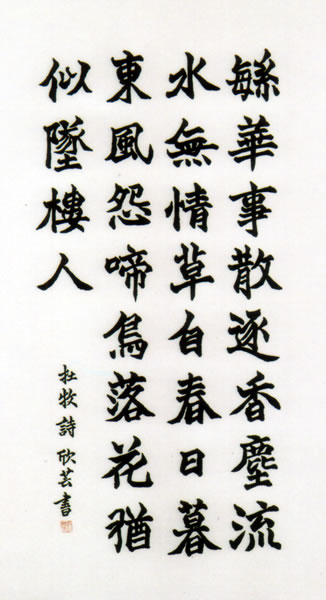 緐華事散逐香塵流
水無情草自春日暮
東風怨啼鳥落花猶
似墜樓人
杜牧詩 欣芸書